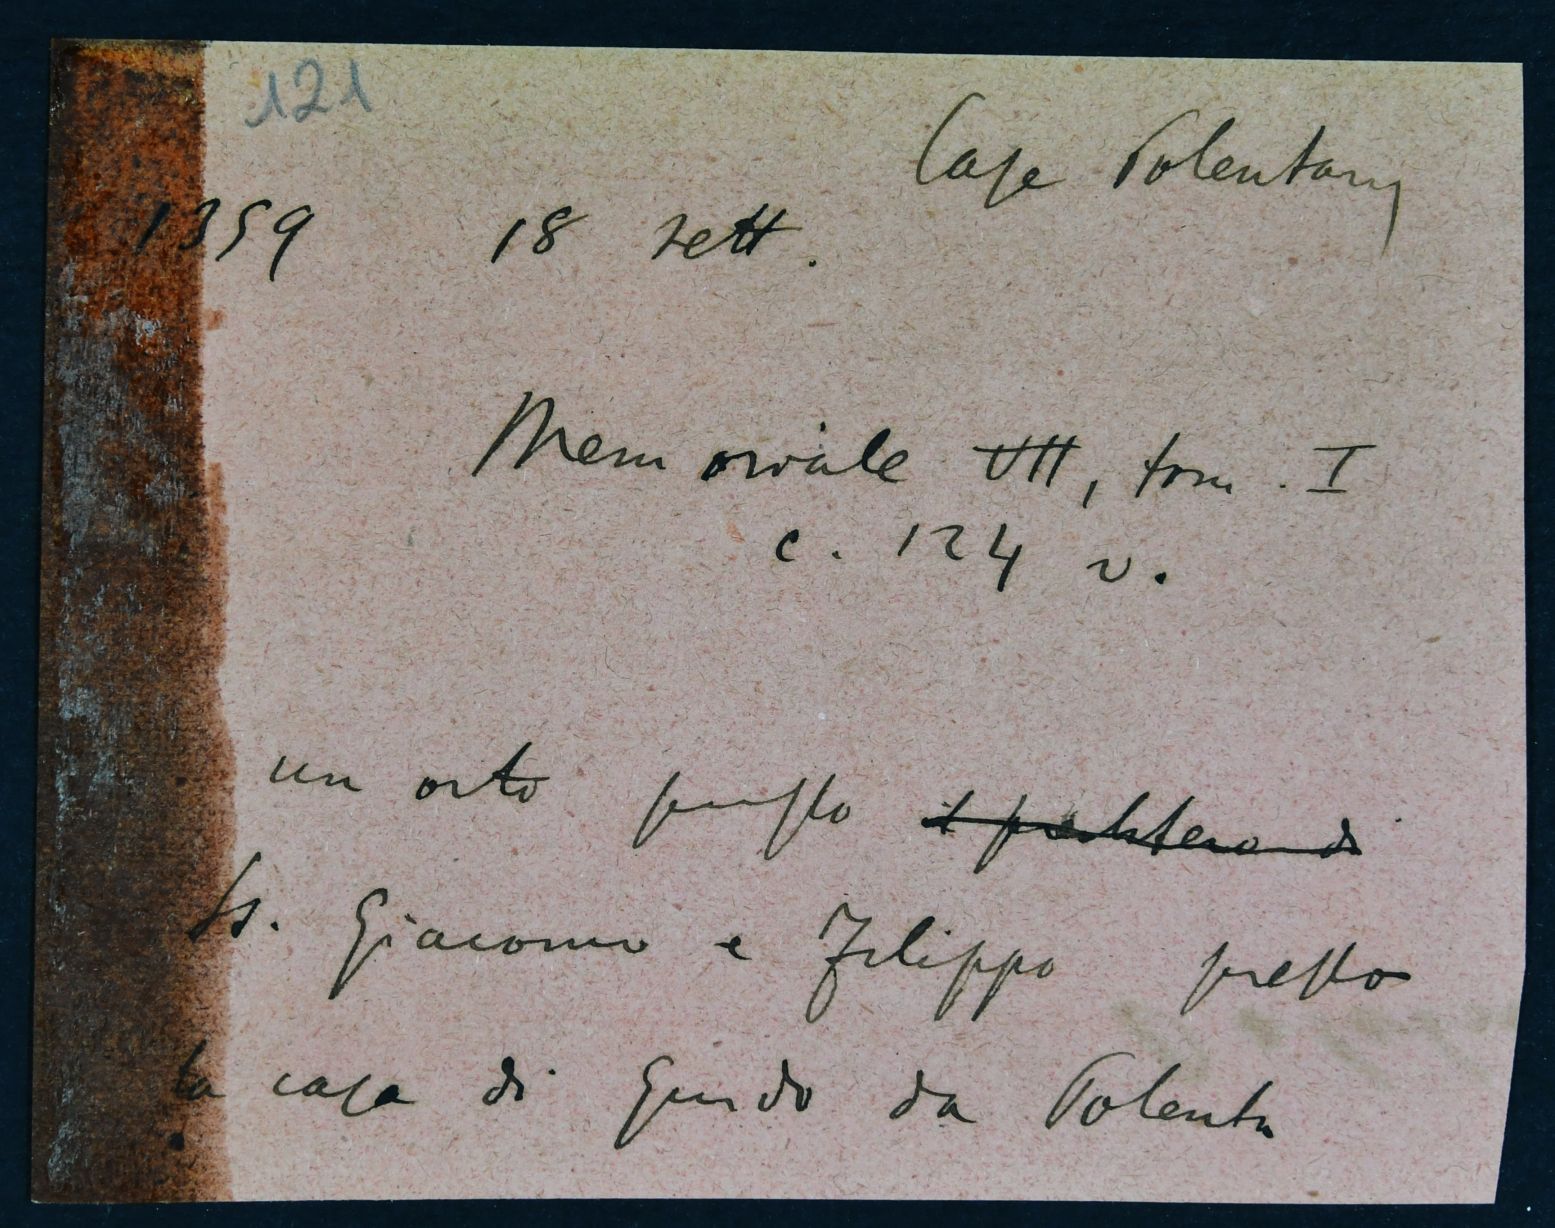 121
Case Polentany
1359 18 sett.
Memoriale VII, tom. I
c. 124 v.
un orto presso
Ss. Giacomo e Filippo presso
la casa di Guido da Polenta